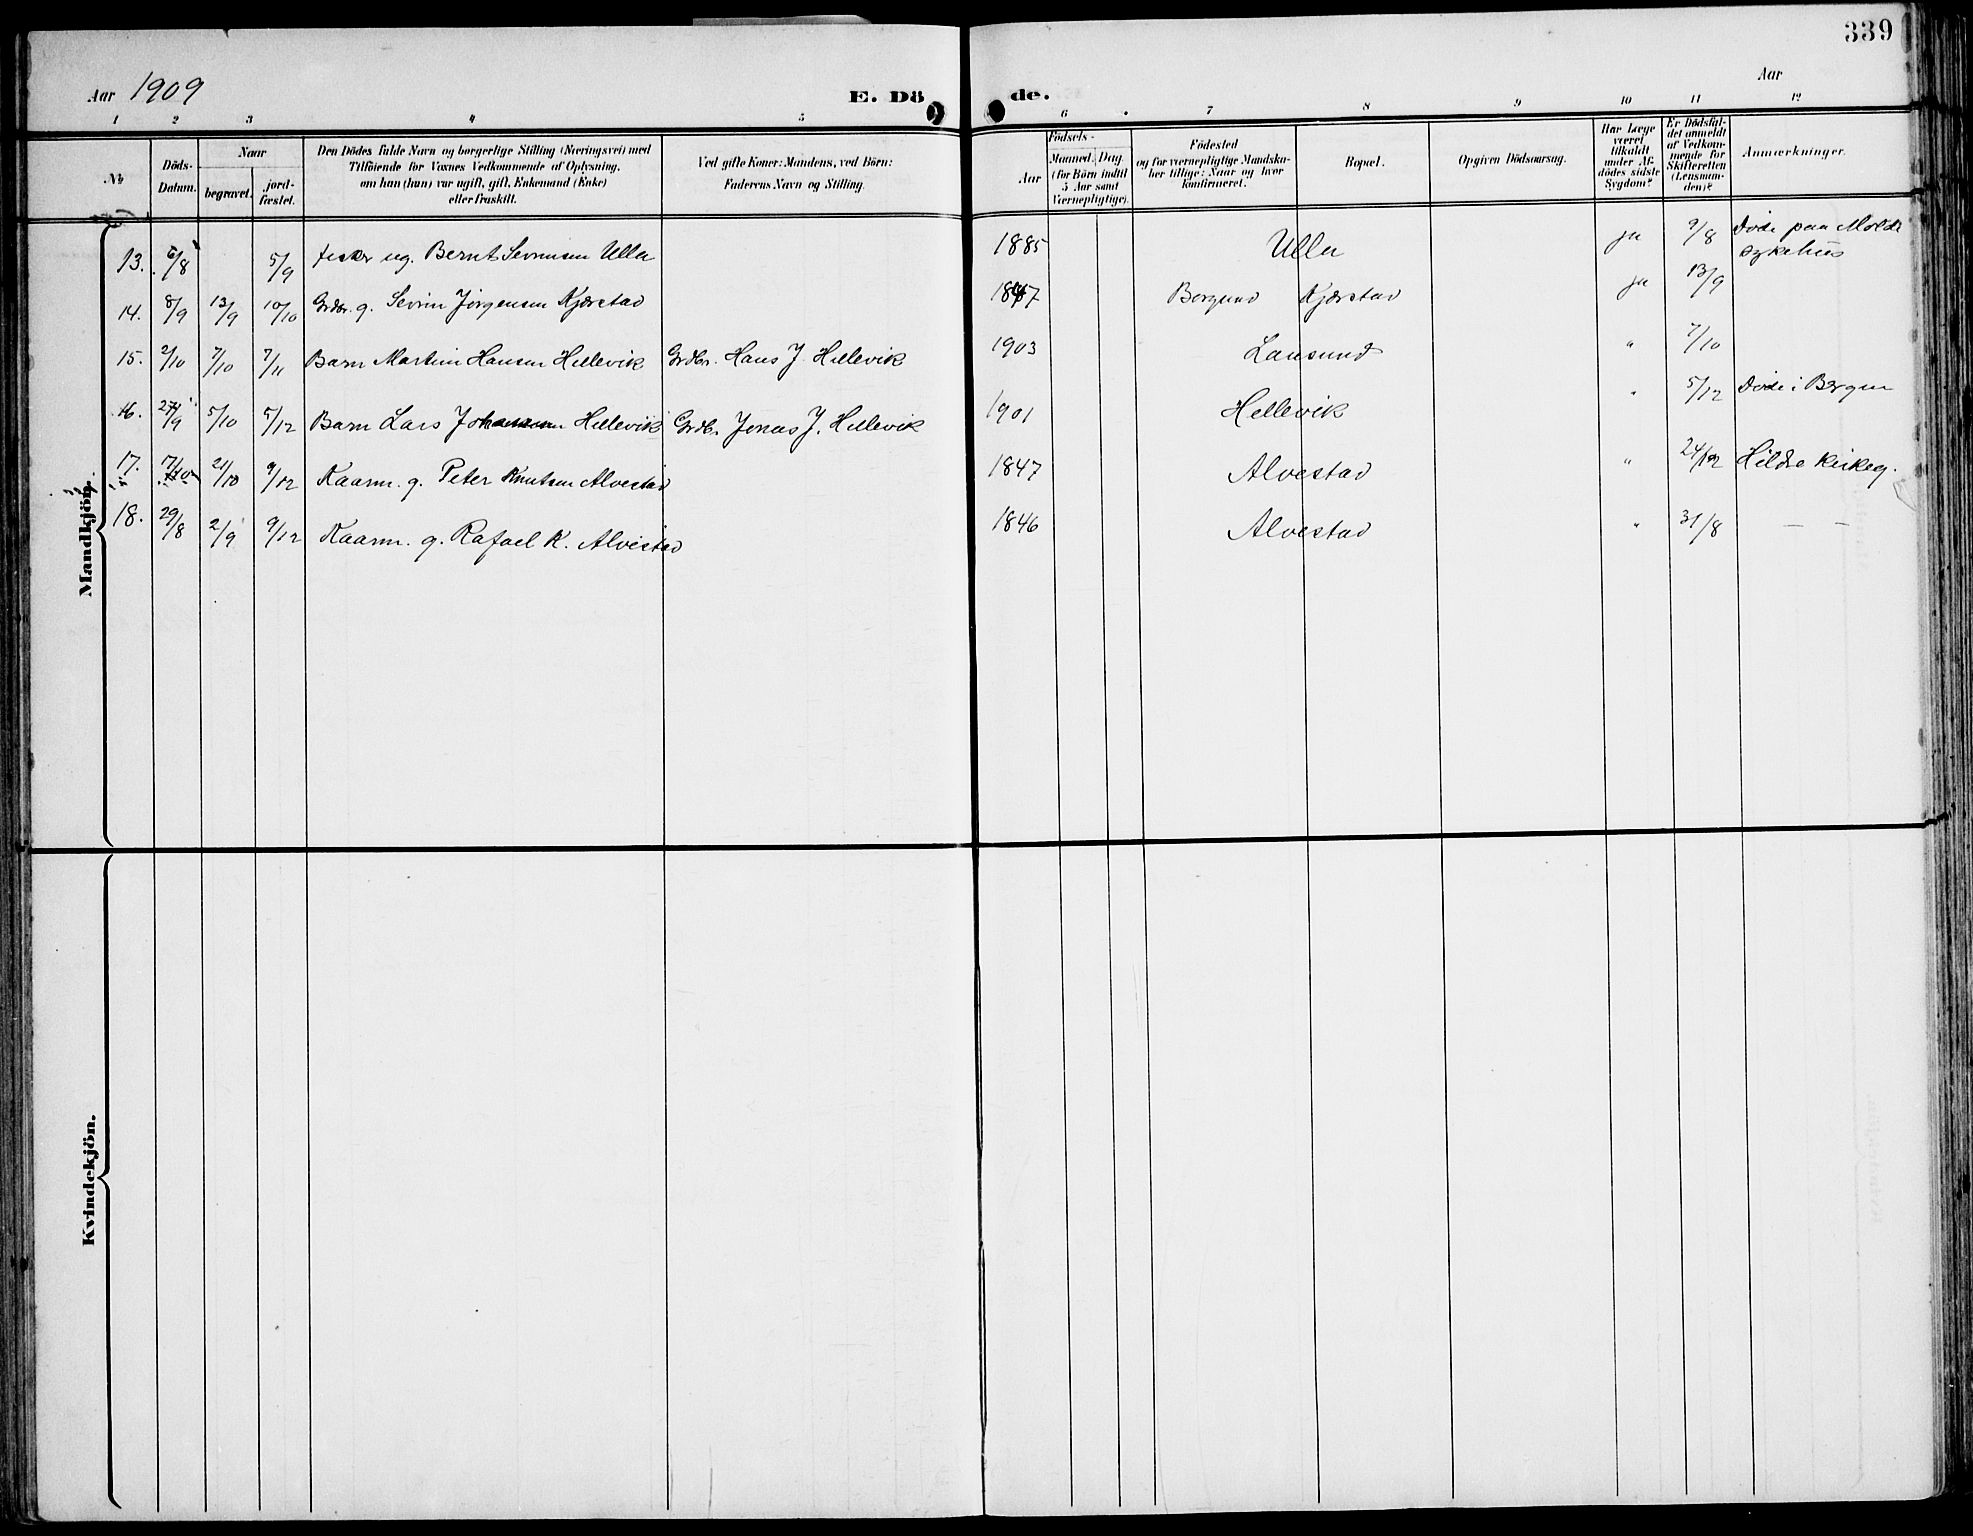 339
Aar 1909
E. Dö
de.
Aar
1 2 3 4 5 6 7 8 9 10 11 12
No
Döds-
Datum.
Naar
begravet.
jord-
fæstet.
Den Dödes fulde Navn og borgerlige Stilling (Næringsvei) med
Tilföiende for Voxnes Vedkommende af Oplysning,
om han (hun) var ugift, gift, Enkemand (Enke)
eller fraskilt.
Ved gifte Koner: Mandens, ved Börn:
Faderens Navn og Stilling.
Födsels-
Aar
Maaned. Dag.
(for Börn indtil
5 Aar samt
Værnepligtige).
Födested
og for værnepligtige Mandska-
ber tillige: Naar og hvor
konfirmeret.
Bopæl.
Opgiven Dödsaarsag.
Har Læge
været
tilkaldt
under Af-
dödes sidste
Sygdom?
Er Dödsfal-
det anmeldt
af Vedkom-
mende for
Skifteretten
(Lensman-
den)?
Anmærkninger.
Mandkjön.
13. 6/8 5/9 fisker ug. Bernt Sevrinsen Ulla 1885 Ulla ja 9/8 Døde paa Molde
sykehus
14. 8/9 13/9 10/10 Grdbr. g. Sevrin Jørgensen Kjærstad 1847 Borgund Kjærstad ja 13/9
15. 2/10 7/10 7/11 Barn Martin Hansen Hellevik Grdbr. Hans J. Hellevik 1903 Lausund " 7/10
16. 27/9 5/10 5/12 Barn Lars Johansen Hellevik Grdbr. Jonas J. Hellevik 1901 Hellevik " 5/12 Døde i Bergen
17. 21/10 9/12 Kaarm. g. Peter Knutsen Alvestad 1847 Alvestad " 24/12 Hildre kirkeg.
18. 29/8 2/9 9/12 Kaarm. g. Rafael K. Alvestad 1846 Alvestad " 31/8 — —
Kvindekjön.